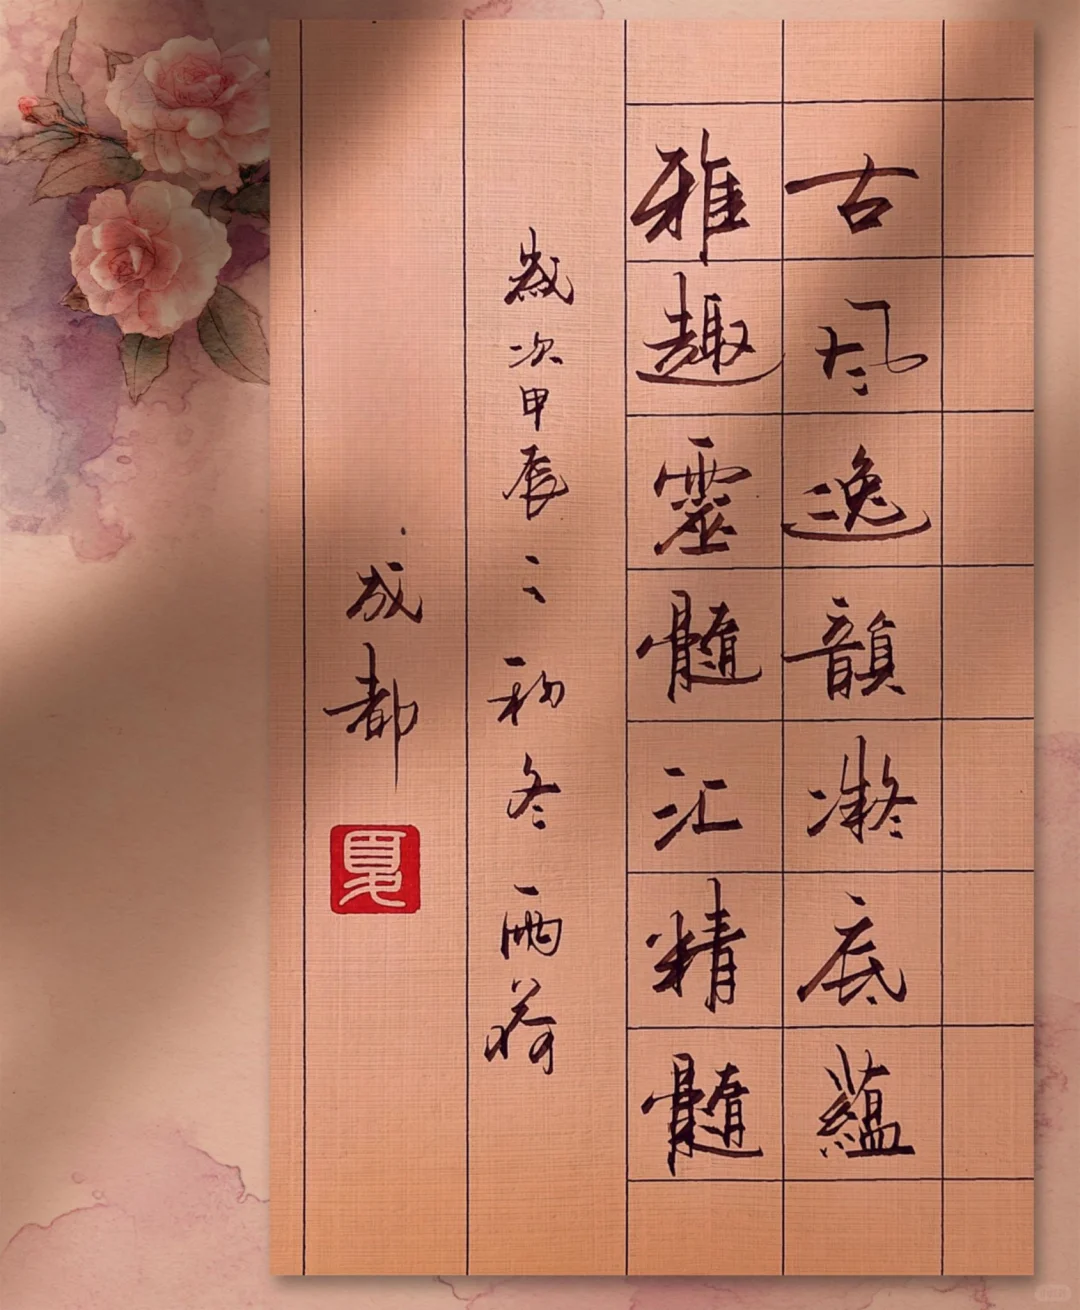 古风逸韻凝底蕴
雅趣靈髓汇精髓
歲次甲辰之初冬雨荷
成都
夏